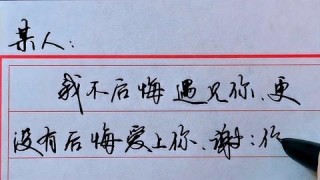 某人：
我不后悔遇见你、更
没有后悔爱上你、谢：你